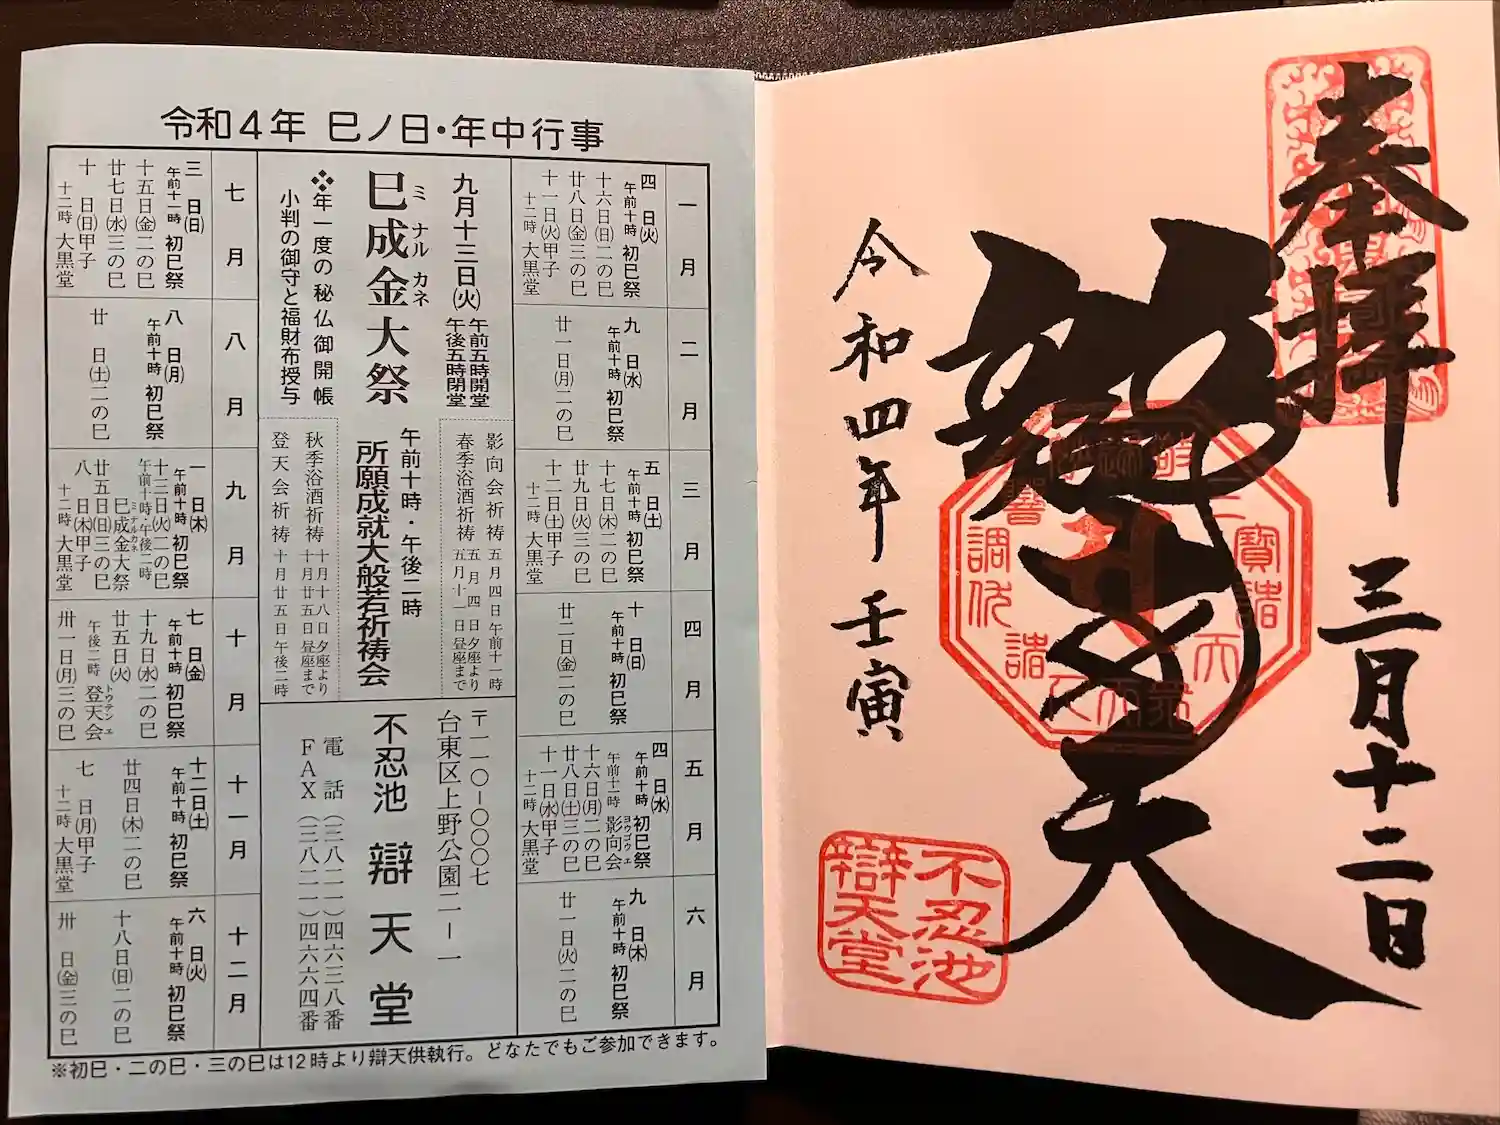 令和4年 巳ノ日・年中行事
一月
四日(火)
午前十時 初巳祭
十六日(日)二の巳
廿八日(金)三の巳
十一日(火)甲子
十二時 大黒堂
二月
九日(水)
午前十時 初巳祭
廿一日(月)二の巳
三月
五日(土)
午前十時 初巳祭
十七日(木)二の巳
廿九日(火)三の巳
十二日(土)甲子
十二時 大黒堂
四月
十日(日)
午前十時 初巳祭
廿二日(金)二の巳
五月
四日(水)
午前十時 初巳祭
午前十一時 影向会
ヨウゴウエ
十六日(月)二の巳
廿八日(土)三の巳
十一日(水)甲子
十二時 大黒堂
六月
九日(木)
午前十時 初巳祭
廿一日(火)二の巳
九月十三日(火)
午前五時開堂
午後五時閉堂
巳成金大祭
ミ ナル カネ
❖年一度の秘仏御開帳
小判の御守と福財布授与
午前十時・午後二時
所願成就大般若祈祷会
影向会祈祷 五月四日午前十一時
春季浴酒祈祷 五月四日夕座より
五月十一日昼座まで
秋季浴酒祈祷 十月十八日夕座より
十月廿五日昼座まで
登天会祈祷 十月廿五日午後二時
〒一一〇-〇〇〇七
台東区上野公園二-一
不忍池 辯天堂
電話(三八二一)四六三八番
FAX(三八二一)四六六四番
七月
三日(日)
午前十一時 初巳祭
十五日(金)二の巳
廿七日(水)三の巳
十日(日)甲子
十二時 大黒堂
八月
八日(月)
午前十時 初巳祭
廿日(土)二の巳
九月
一日(木)
午前十時 初巳祭
十三日(火)二の巳
午前十時・午後二時
巳成金大祭
ミナルカネ
廿五日(日)三の巳
八日(木)甲子
十二時 大黒堂
十月
七日(金)
午前十時 初巳祭
十九日(水)二の巳
廿五日(火)
午後二時 登天会
トウテンエ
卅一日(月)三の巳
十一月
十二日(土)
午前十時 初巳祭
廿四日(木)二の巳
七日(月)甲子
十二時 大黒堂
十二月
六日(火)
午前十時 初巳祭
十八日(日)二の巳
卅日(金)三の巳
※初巳・二の巳・三の巳は12時より辯天供執行。どなたでもご参加できます。
奉拝 三月十二日
辯才天
令和四年 壬寅
不忍池
辯天堂